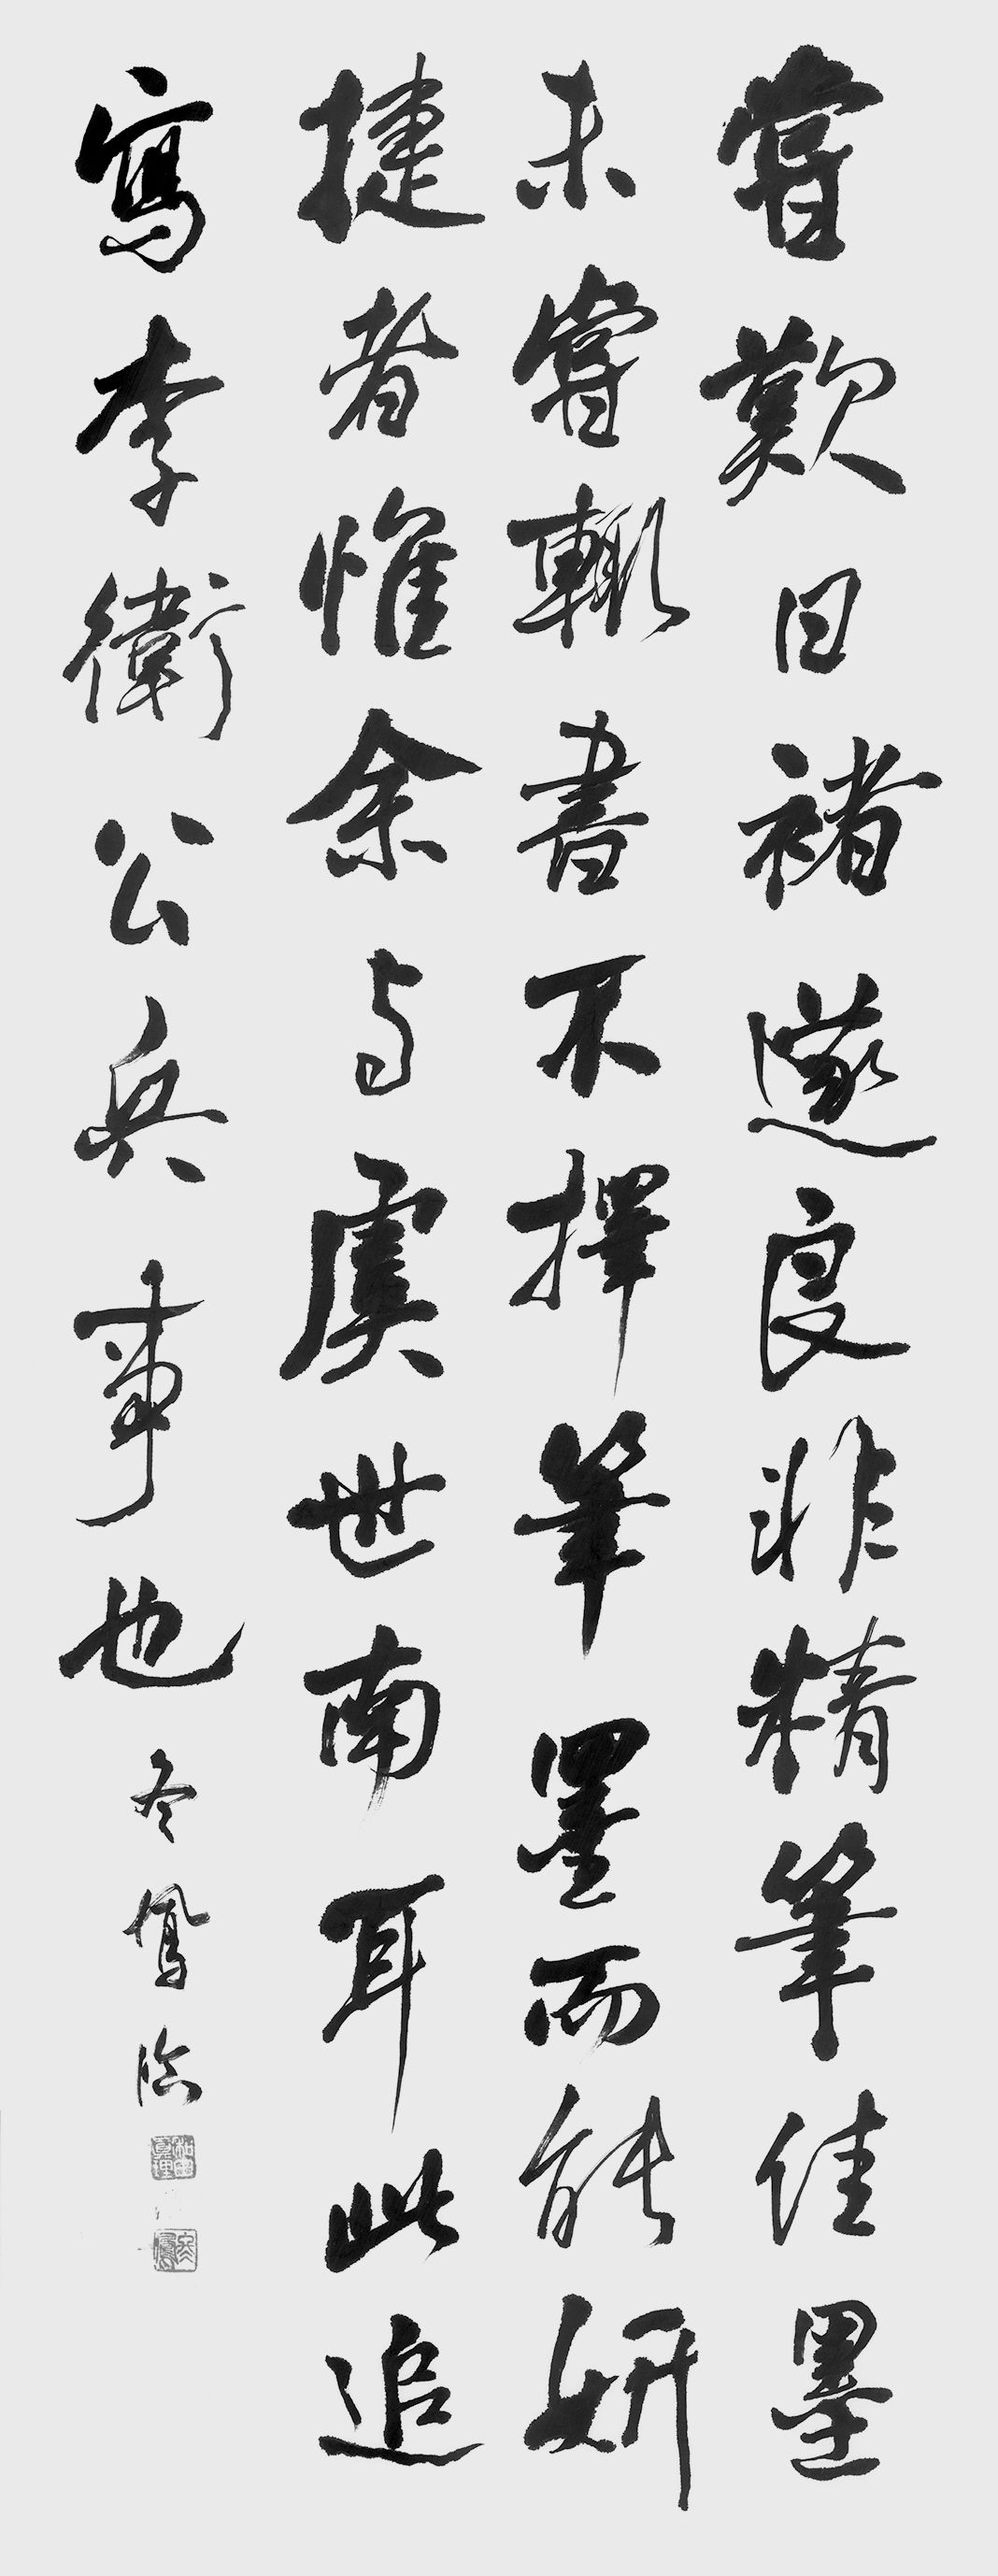 嘗歎曰褚遂良非精筆佳墨
未嘗輒書不擇筆墨而能妍
捷者惟余与虞世南耳此追
寫李衛公兵事也 冬鳳臨